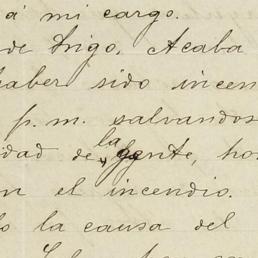 á mi cargo.
de trigo, Acaba
haber sido incen
p.m. salvandos
idad de la gente, ho
n el incendio.
lo la causa del